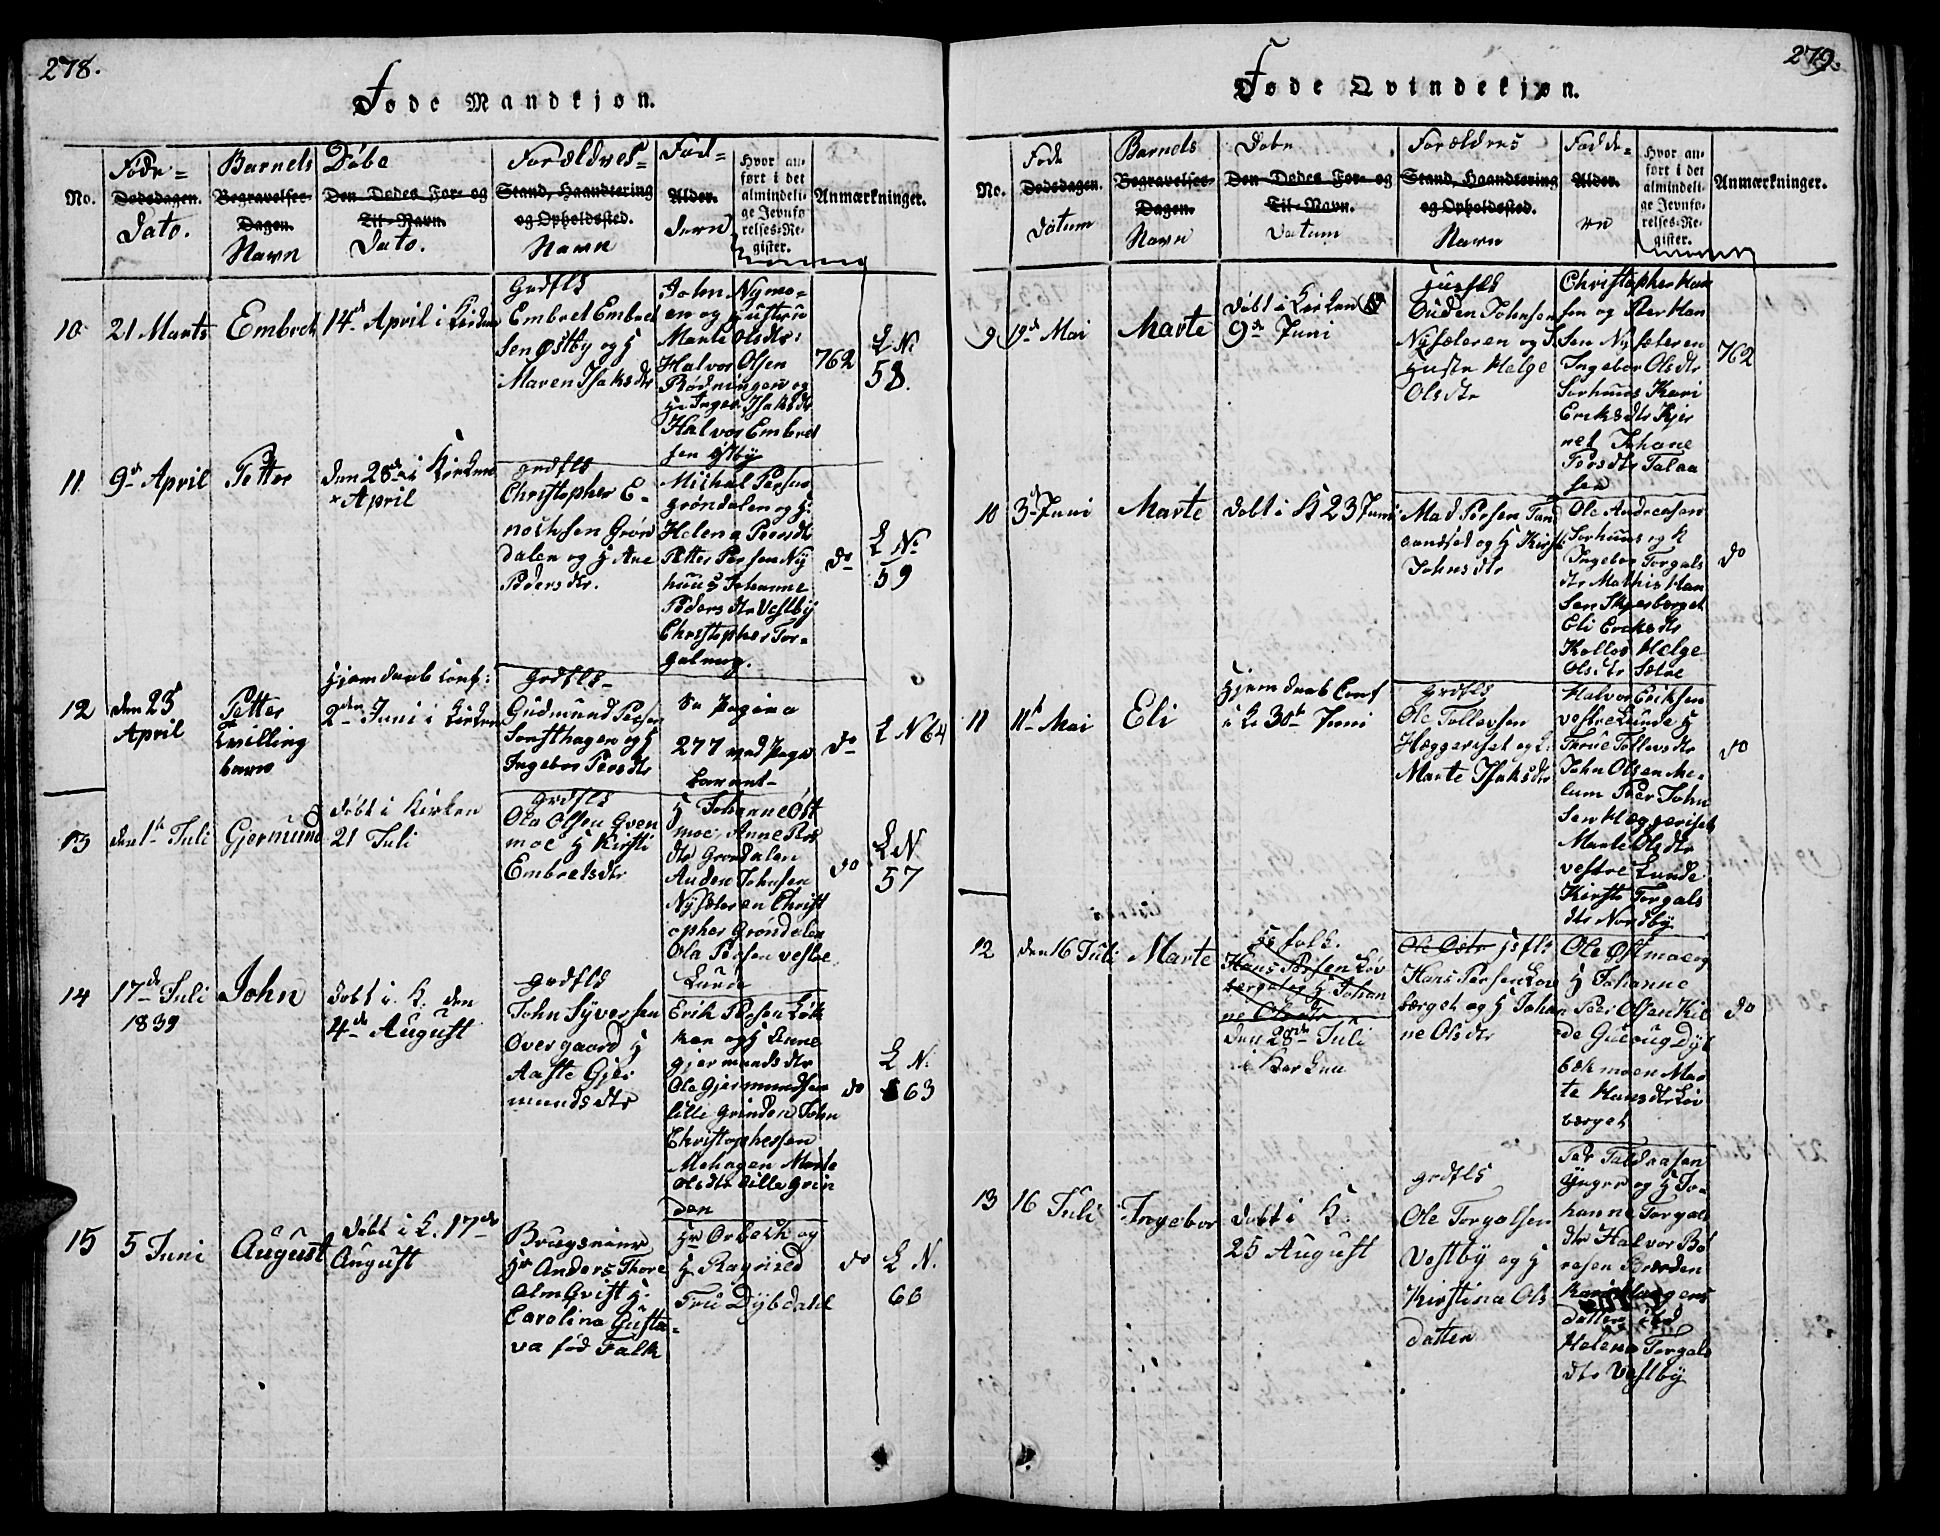 278.
Føde Mandkjøn.
No.
Føde-
Dødsdagen.
Dato.
Barnets
Begravelses-
Dagen.
Navn
Døbe
Den Dødes For- og
Til-Navn.
Dato.
Forældres-
Stand, Haandtering
og Opholdssted.
Navn
Fad-
Alder.
dern
Hvor an-
ført i det
almindeli-
ge Jevnfø-
relses-Re-
gister.
Anmærkninger.
10
21 Marts
Embret
14d April i Kirken
Grdfls
Embret Embret
sen Østby og H
Maren Isaksdtr
John Nymo-
en og Hustru
Marte Olsdtr:
Halvor Olsen
Rødningen og
H: Inger Isaksdtr
Halvor Embret
sen Østby
762
L No
58.
11
9d April
Petter
den 28d i Kirken
April
grdfls
Christopher E-
nochsen Grøn
dalen og H Ane
Pedersdtr.
Michal Persen
Grøndalen og H:
Helena Persdtr
Petter Persen Ny
huus Johanne
Pedersdtr Vestby
Christopher Tor-
galmog.
do
L No
59
12
den 23d
April
Petter
tvilling
barn
Hjemdøub Conf:
2den Juni i Kirken
Grdfls-
Gudmund Persen
Sorsthagen og H
Ingebor Persdtr
Se Pagina
277 ved Page
barent-
do
L N 64
13
den 1te Juli
Gjermund
døbt i Kirken
21 Juli
grdfls
Ola Olsen Qven
moe H Kirsti
Embretsdtr
H Johanne Øst
moe Anne Pers
dtr Grøndalen
Auden Johnsen
Nysæteren Christ
opher Grøndalen
Ola Persen vestre
Lunde
do
L N
57
14
17de Juli
1839
John
døbt i K. den
4de August
grdfls
John Syversen
Øvergaard H
Aaste Gjer
mundsdtr
Erik Persen Løk
ken og H Anne
Gjermundsdtr
Ole Gjermundsen
lille Grinden John
Christophersen
Mohagen Marte
Olsdtr lille Grin
den
do
L N.
63
15
5 Juni
August
døbt i K. 17de
August
Brugseier
Hr Anders Thore
Alm Qvist H:
Carolina Gusta-
va fød Falk
Hr Orbech og
H Ragnild
Fru Dybdahl
do
L N.
60
279.
Føde Qvindekjøn.
No.
Føde
Dødsdagen.
Datum
Barnets
Begravelses-
Dagen.
Navn
Døbe
Den Dødes For- og
Til-Navn.
Datum
Forældres
Stand, Haandtering
og Opholdssted.
Navn
Fadde-
Alder.
re
Hvor an-
ført i det
almindeli-
ge Jevnfø-
relses-Re-
gister.
Anmærkninger.
9
19d Mai
Marte
døbt i Kirken
9de Juni
Huusfls
Ouden Johnsen
Nysæteren og
Hustr Helge
Olsdtr
Christopher Han
sen og Peer Han
sen Nysæteren
Ingebor Olsdtr
Sorhuus Kari
Eriksdtr Kjer
net Johane
Persdtr Talaa
sen
762
10
3d Juni
Marte
døbt i K 23 Juni
Mad Persen Tand
aandset og H Kirsti
Johnsdtr
Ole Andreasen
Sorhuus og H
Ingebor Torgals
dtr Mathis Han
sen Skjæsberget
Eli Ericksdtr
Kollos Helge
Olsdtr Sætre
do
11
11d Mai
Eli
Hjemdøub Conf
i K 30te Juni
grdfls
Ole Tollevsen
Hæggeriset og
Marte Isaksdtr
Halvor Eriksen
vestre Lunde H
Thrue Tollevsdtr
John Olsen Me-
lum Peer John
sen Hæggeriset
Marte Olsdtr
vestre Lunde
Kirsti Torgals
dtr Nordby
do
12
den 16 Juli
Marte
Hs folk.
Hans Persen Løv
bærget og H Johan
ne Olsdtr
den 28de Juli
i Kirken
Ole Østr Hsfls
Hans Persen Løv
bærget og H Johan
ne Olsdtr
Ole Østmoe og
H Johanne
Peer Olsen Kil
de Guroug Dyb
bækmoen Mar
te Hansdtr Løv
bærget
do
13
16 Juli
Ingebor
døbt i K.
25 August
grdfls
Ole Torgalsen
Vestby og H
Kirstina Ols
datter
Peder Taldaasen
Ynger og H Jo-
hanne Torgals
dtr Halvor Baa
resen Bræden
datter
Helene Torgals
dtr Vestby